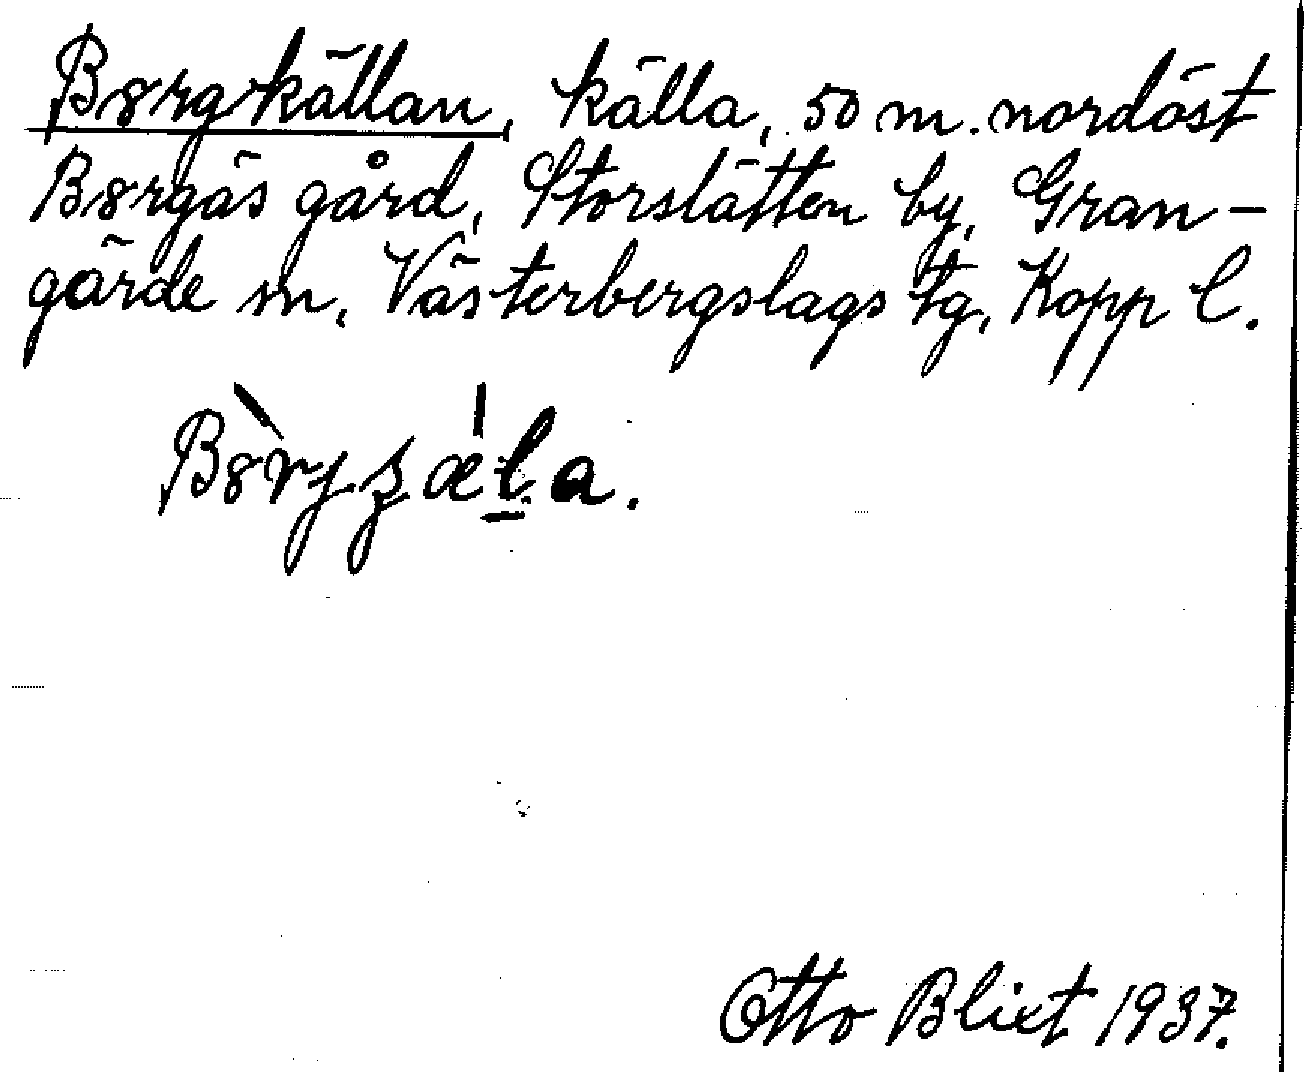 Bergkällan, källa, 50 m. nordöst
Bergäs gård, Storslätten by, Gran-
gärde sn, Västerbergslags tg, Kopp l.
Otto Blixt 1937.